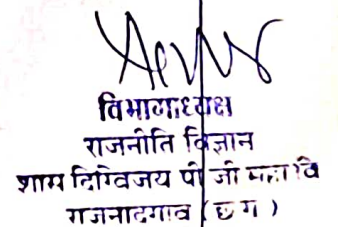 विभागाध्यक्ष
राजनीति विज्ञान
शास दिग्विजय पी जी महा वि
राजनादगाव ( छ ग )